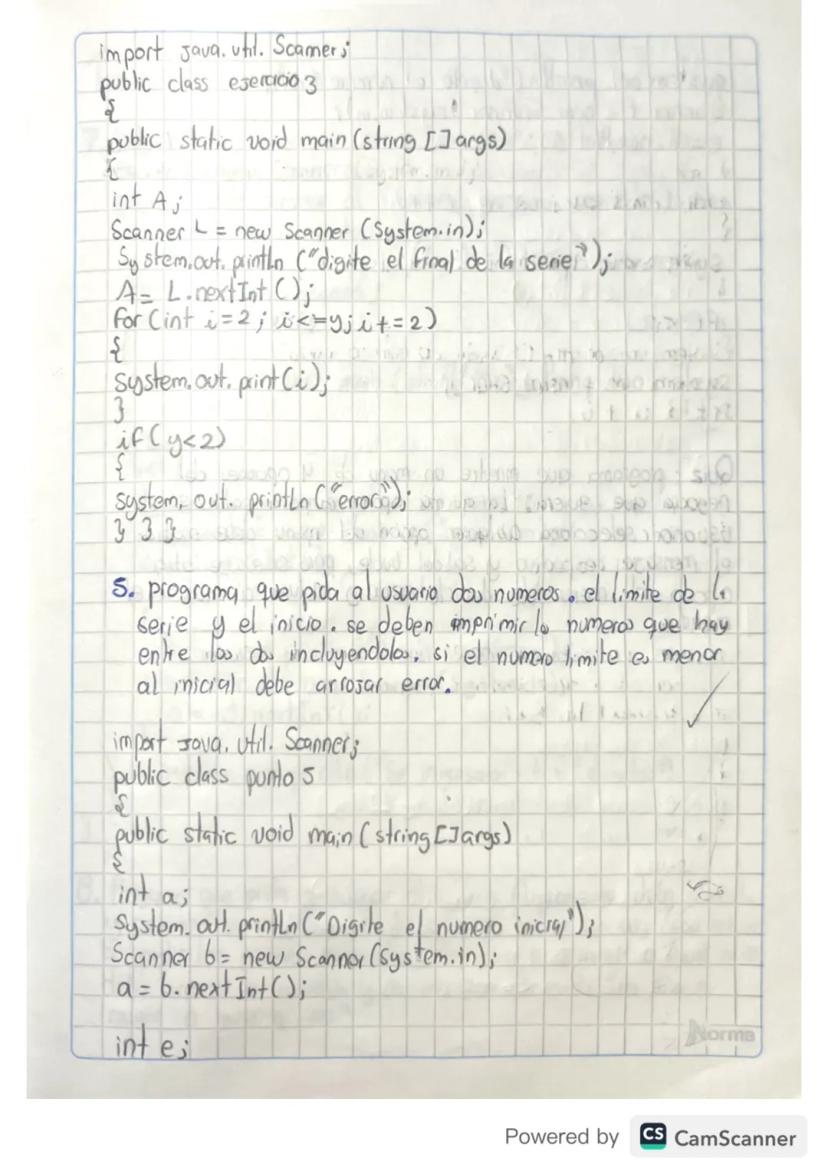 import Java.util.Scanner;
public class ejercicio 3
{
public static void main (string [] args)
{
int A;
Scanner L = new Scanner (System.in);
System.out.println ("digite el final de la serie");
A = L.nextInt ();
for (int i=2; i<=y; i+=2)
{
System.out.print(i);
}
if (y<2)
{
system.out.println ("error");
} } }
5. programa que pida al usuario dos numeros. el limite de la
serie y el inicio. se deben imprimir lo numeros que hay
entre los dos incluyendolos. si el numero limite es menor
al inicial debe arrojar error.
import Java.util.Scanner;
public class punto 5
{
public static void main (string [] args)
{
int a;
System.out.println ("Digite el numero inicial");
Scanner b = new Scanner (system.in);
a = b.nextInt();
int e;
Norma
Powered by CS CamScanner